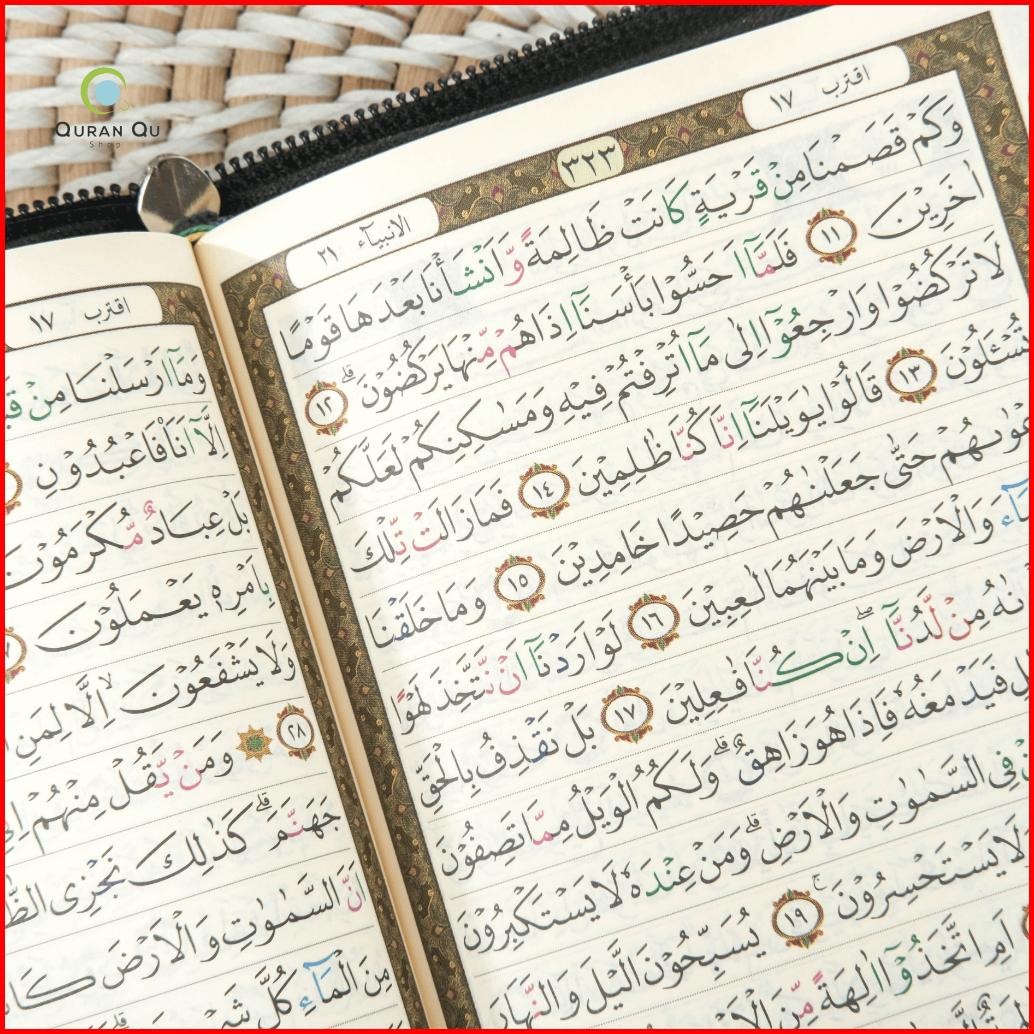 QURAN QU
Shop
اقترب ١٧
٣٢٣
الانبيآء ٢١
وَكَمْ قَصَمْنَا مِنْ قَرْيَةٍ كَانَتْ ظَالِمَةً وَّاَنْشَأْنَا بَعْدَهَا قَوْمًا
اٰخَرِيْنَ ١١ فَلَمَّآ اَحَسُّوْا بَأْسَنَآ اِذَا هُمْ مِّنْهَا يَرْكُضُوْنَ ۗ ١٢
لَا تَرْكُضُوْا وَارْجِعُوْٓا اِلٰى مَآ اُتْرِفْتُمْ فِيْهِ وَمَسٰكِنِكُمْ لَعَلَّكُمْ
تُسْـَٔلُوْنَ ١٣ قَالُوْا يٰوَيْلَنَآ اِنَّا كُنَّا ظٰلِمِيْنَ ١٤ فَمَا زَالَتْ تِّلْكَ
دَعْوٰىهُمْ حَتّٰى جَعَلْنٰهُمْ حَصِيْدًا خَامِدِيْنَ ١٥ وَمَا خَلَقْنَا
وَالْاَرْضَ وَمَا بَيْنَهُمَا لٰعِبِيْنَ ١٦ لَوْ اَرَدْنَآ اَنْ نَّتَّخِذَ لَهْوًا
مِنْ لَّدُنَّآ ۖ اِنْ كُنَّا فٰعِلِيْنَ ١٧ بَلْ نَقْذِفُ بِالْحَقِّ
فَيَدْمَغُهٗ فَاِذَا هُوَ زَاهِقٌ ۗ وَلَكُمُ الْوَيْلُ مِمَّا تَصِفُوْنَ
فِى السَّمٰوٰتِ وَالْاَرْضِ ۗ وَمَنْ عِنْدَهٗ لَا يَسْتَكْبِرُوْنَ
وَلَا يَسْتَحْسِرُوْنَ ۚ ١٩ يُسَبِّحُوْنَ الَّيْلَ وَالنَّهَارَ
اَمِ اتَّخَذُوْٓا اٰلِهَةً مِّنَ
اقترب ١٧
وَمَآ اَرْسَلْنَا مِنْ
اِلَّآ اَنَا۠ فَاعْبُدُوْنِ
بَلْ عِبَادٌ مُّكْرَمُوْنَ
بِاَمْرِهٖ يَعْمَلُوْنَ
وَلَا يَشْفَعُوْنَ ۙ اِلَّا لِمَنِ
٢٨ ۞ وَمَنْ يَّقُلْ مِنْهُمْ
جَهَنَّمَ ۗ كَذٰلِكَ نَجْزِى
اَنَّ السَّمٰوٰتِ وَالْاَرْضَ
مِنَ الْمَآءِ كُلَّ